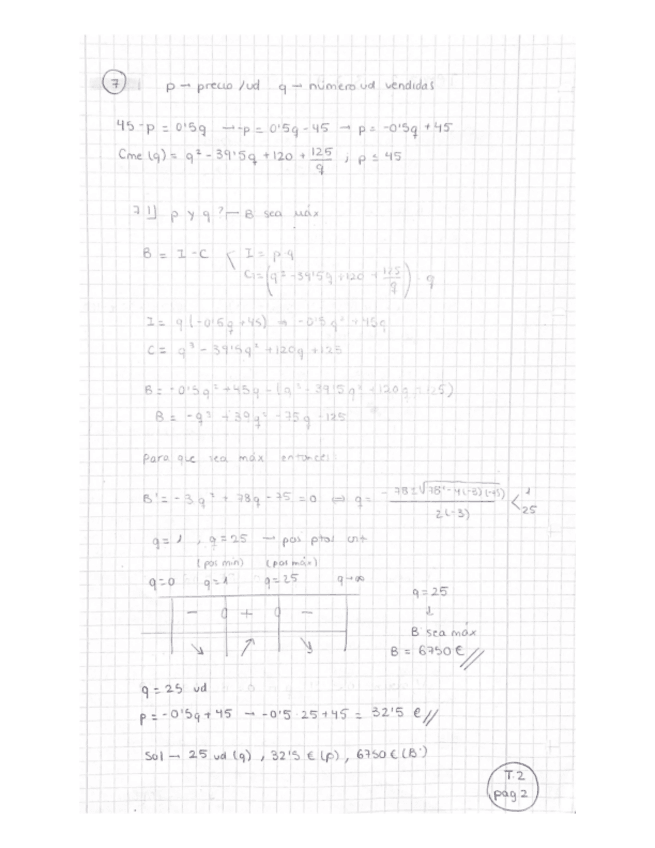 7 p → precio/ud q → número ud vendidas
45 - p = 0'5q → -p = 0'5q - 45 → p = -0'5q + 45
Cme (q) = q² - 39'5q + 120 + 125/q , p ≤ 45
7.1] p y q? → B sea máx
B = I - C < I = p·q
C = (q² - 39'5q + 120 + 125/q) · q
I = q (-0'5q + 45) → -0'5q² + 45q
C = q³ - 39'5q² + 120q + 125
B = -0'5q² + 45q - (q³ - 39'5q² + 120q + 125)
B = -q³ + 39q² - 75q - 125
Para que sea máx entonces:
B' = -3q² + 78q - 75 = 0 ⇔ q = -78 ± √78² - 4(-3)(-75) / 2(-3) < 1
25
q = 1 , q = 25 → pos ptos crít
(pos mín) (pos máx)
q=0 q=1 q=25 q→∞
- 0 + 0 -
↘ ↗ ↘
q = 25
↓
B sea máx
B = 6750 € //
q = 25 ud
p = -0'5q + 45 → -0'5·25 + 45 = 32'5 € //
Sol → 25 ud (q) , 32'5 € (p) , 6750 € (B)
T.2
pág.2